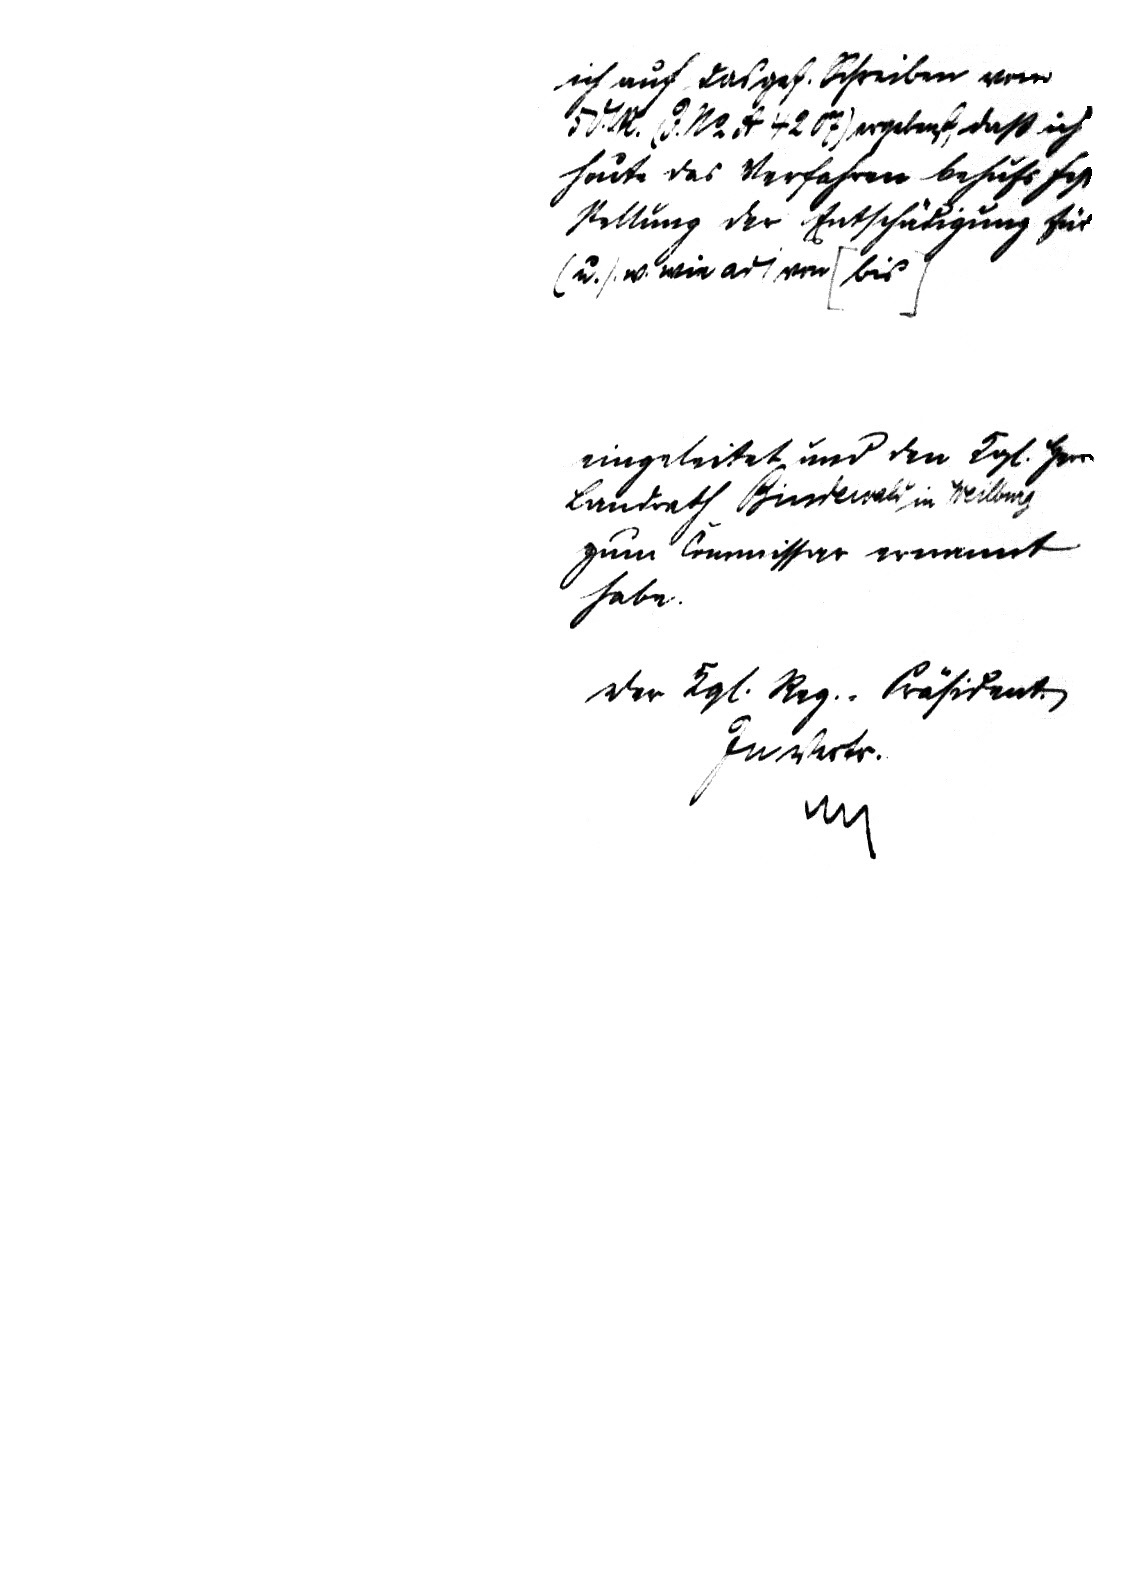 ich auf das gef. Schreiben vom
5 d. M. (J. No A 4207) ergebenst, daß ich
heute das Verfahren behufs Fest
stellung der Entschädigung für
(u.) w. wie ad 1 von [bis]
eingeleitet und den Kgl. Herrn
Landrath Bindewald in Weilburg
zum Commissar ernannt
habe.
Der Kgl. Reg.-Präsident.
In Vertr.